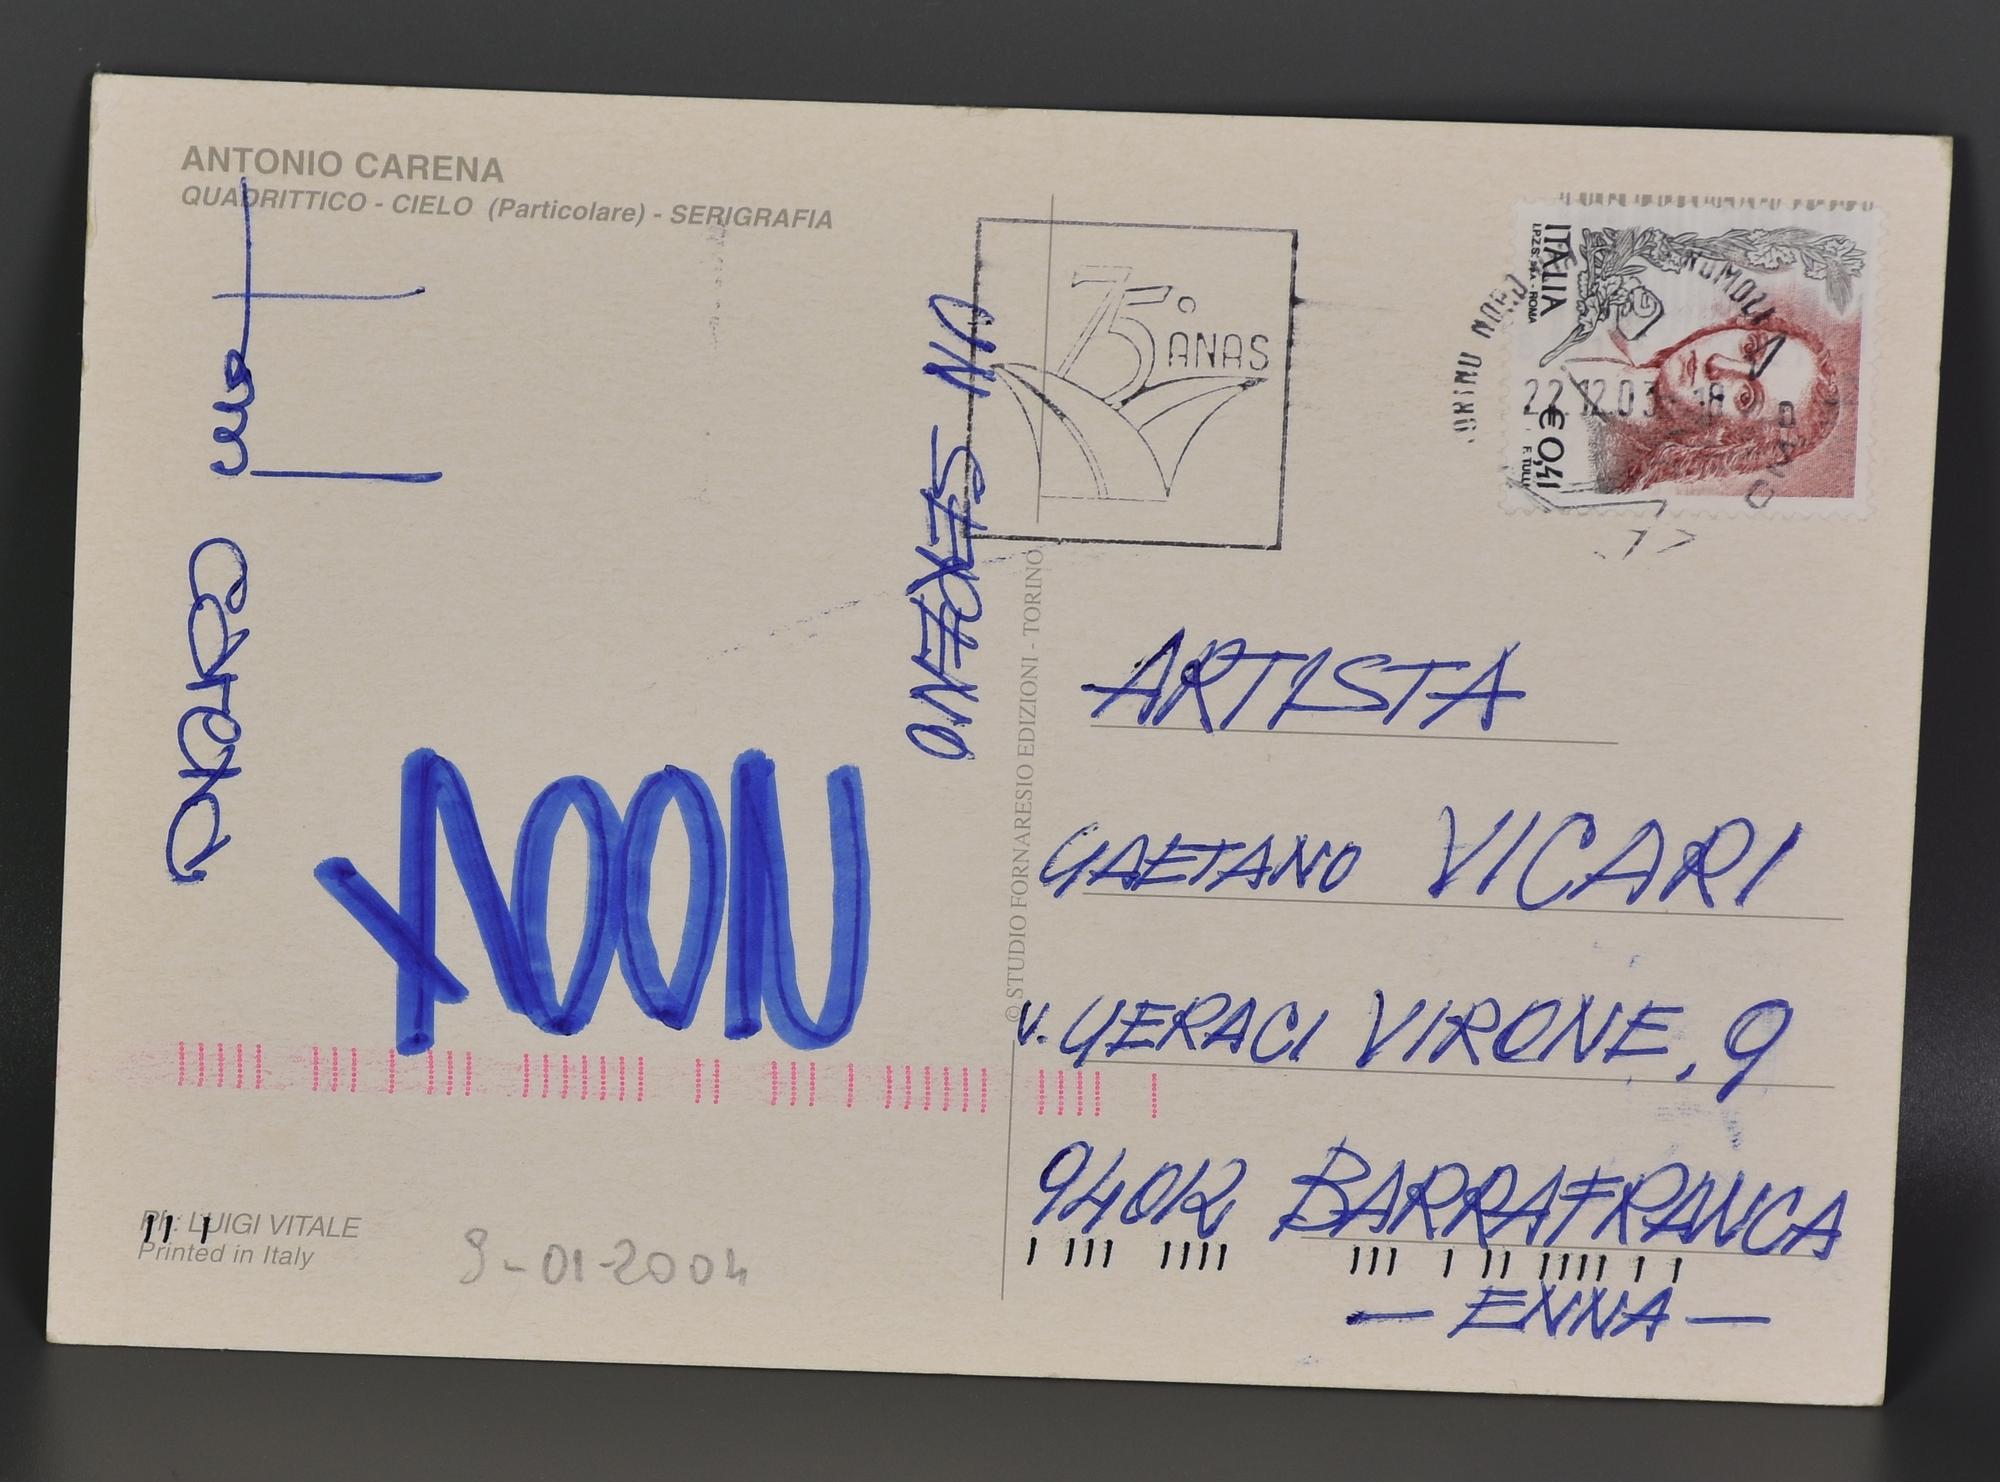 ANTONIO CARENA
QUADRITTICO - CIELO (Particolare) - SERIGRAFIA
UN SERENO
© STUDIO FORNARESIO EDIZIONI - TORINO
75° ANAS
ITALIA
I.P.Z.S. S.p.A. - ROMA
€ 0,41
F. TULLI
TORINO NORD
22.12.03 - 18
CMP
ARTISTA
GAETANO VICARI
V. GERACI VIRONE, 9
94012 BARRAFRANCA
- ENNA -
Ph: LUIGI VITALE
Printed in Italy
9-01-2004